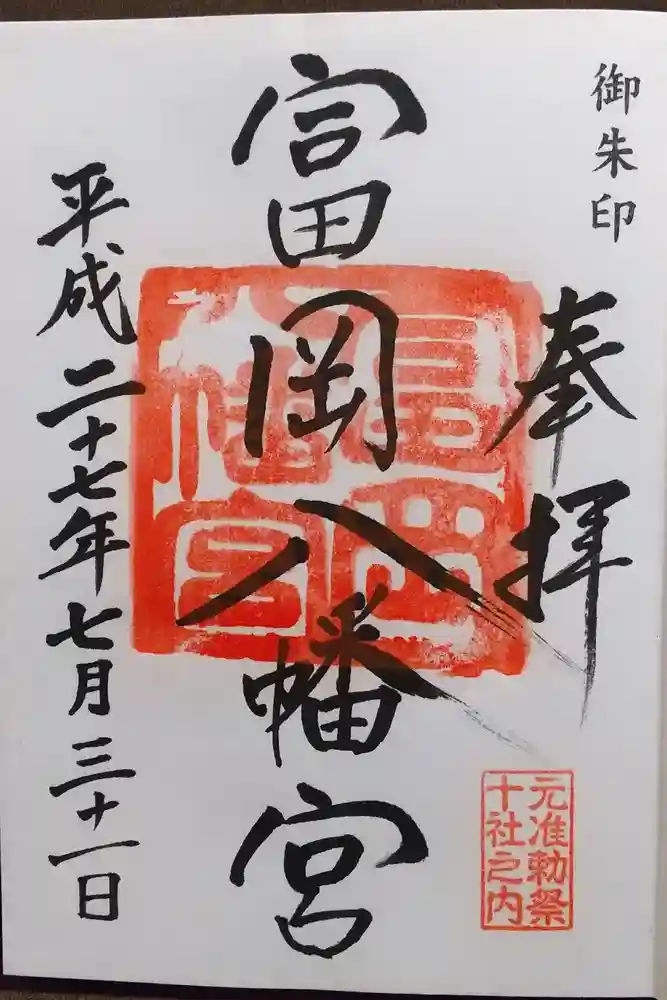 御朱印
奉拝
富岡八幡宮
平成二十七年七月三十一日
元准勅祭
十社之内